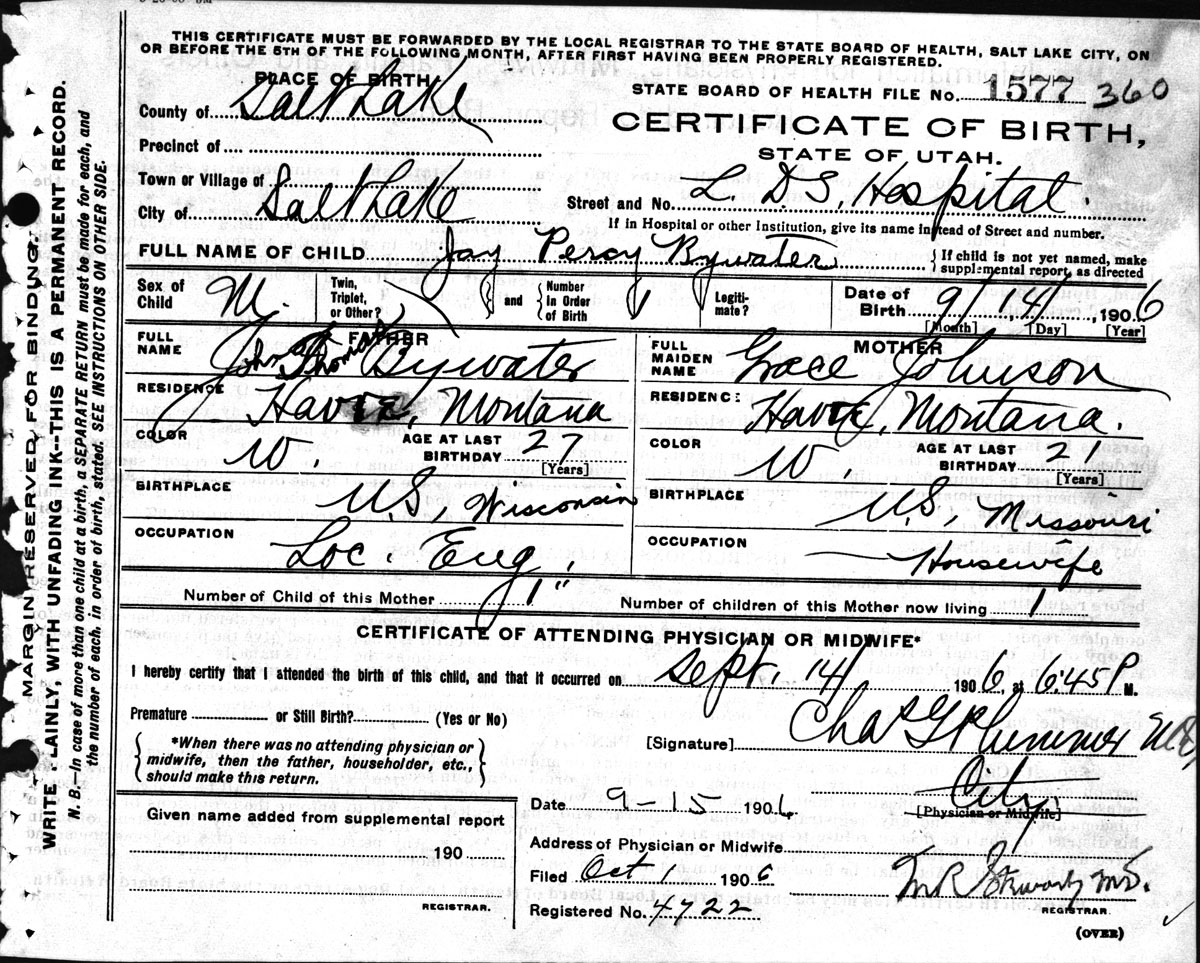 THIS CERTIFICATE MUST BE FORWARDED BY THE LOCAL REGISTRAR TO THE STATE BOARD OF HEALTH, SALT LAKE CITY, ON
OR BEFORE THE 5TH OF THE FOLLOWING MONTH, AFTER FIRST HAVING BEEN PROPERLY REGISTERED.
PLACE OF BIRTH
STATE BOARD OF HEALTH FILE No. 1577 360
County of Salt Lake
CERTIFICATE OF BIRTH,
STATE OF UTAH.
Precinct of
Town or Village of
Street and No. L. D. S. Hospital.
City of Salt Lake
If in Hospital or other Institution, give its name instead of Street and number.
FULL NAME OF CHILD Jay Percy Bywater { If child is not yet named, make supplemental report, as directed
Sex of Child M. Twin, Triplet, or Other? { and Number In Order of Birth } Legiti-mate? Date of Birth 9/14/, 1906
[Month] [Day] [Year]
FATHER
FULL NAME John Thomas Bywater
RESIDENCE Havre, Montana
COLOR W. AGE AT LAST BIRTHDAY 27 [Years]
BIRTHPLACE U.S, Wisconsin
OCCUPATION Loc. Eng,
MOTHER
FULL MAIDEN NAME Grace Johnson
RESIDENC: Havre, Montana.
COLOR W. AGE AT LAST BIRTHDAY 21 [Years]
BIRTHPLACE U.S, Missouri
OCCUPATION Housewife
Number of Child of this Mother 1" Number of children of this Mother now living 1
CERTIFICATE OF ATTENDING PHYSICIAN OR MIDWIFE*
I hereby certify that I attended the birth of this child, and that it occurred on Sept. 14/ 1906, at 6:45 P M.
Premature or Still Birth? (Yes or No)
{ *When there was no attending physician or midwife, then the father, householder, etc., should make this return. }
[Signature] Chas G Plummer M D
City
[Physician or Midwife]
Date 9-15 1906
Address of Physician or Midwife
Given name added from supplemental report
190
REGISTRAR.
Filed Oct 1 1906
M R Stewart M.D.
REGISTRAR.
Registered No. 4722
(OVER)
MARGIN RESERVED FOR BINDING.
WRITE LAINLY, WITH UNFADING INK--THIS IS A PERMANENT RECORD.
N. B.—In case of more than one child at a birth, a SEPARATE RETURN must be made for each, and
the number of each, in order of birth, stated. SEE INSTRUCTIONS ON OTHER SIDE.